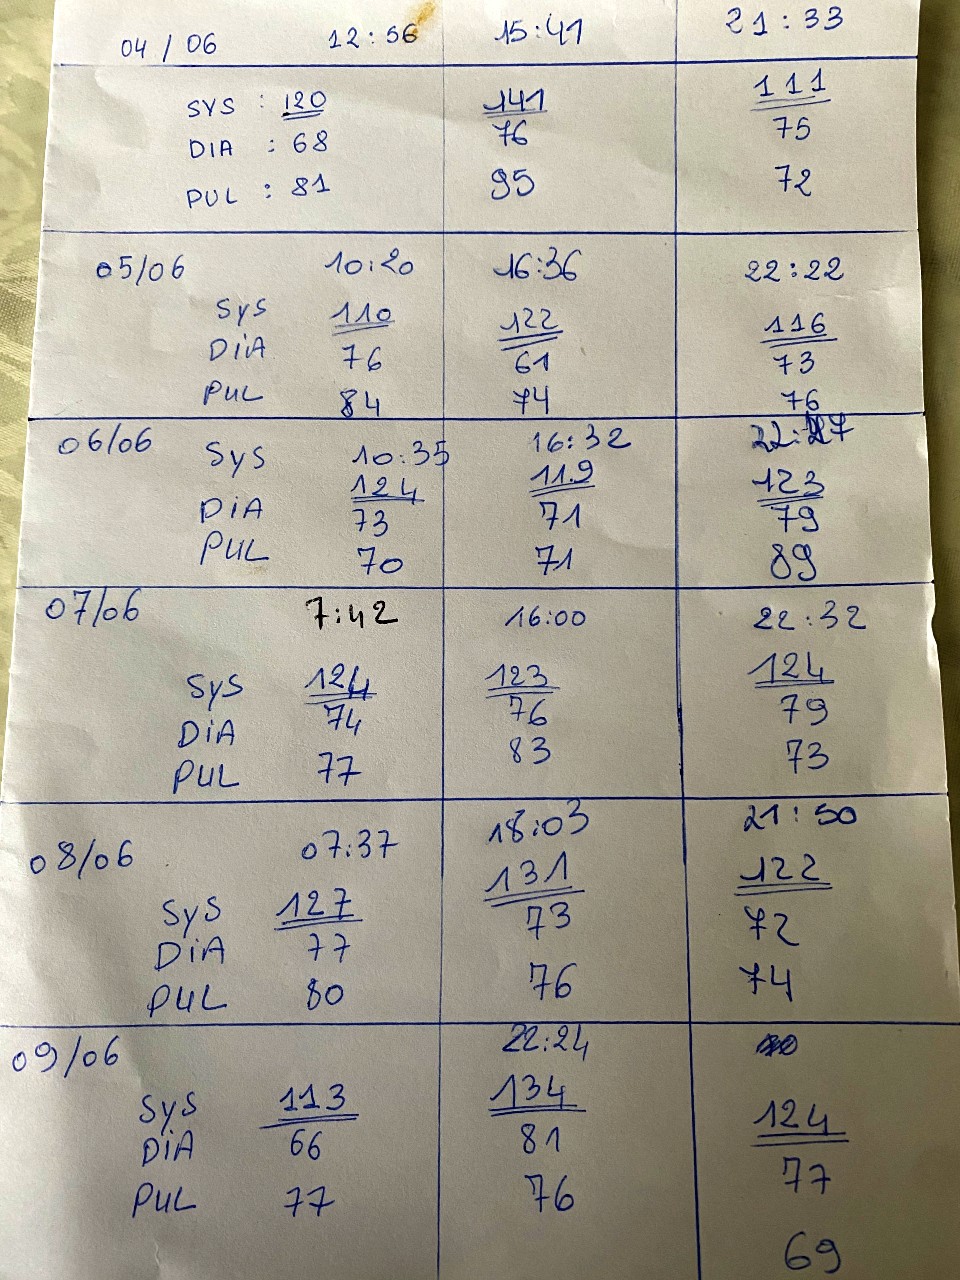 04 / 06 12:56 15:41 21:33
SYS : 120 141 111
DIA : 68 76 75
PUL : 81 95 72
05/06 10:20 16:36 22:22
SyS 110 122 116
DiA 76 61 73
PUL 84 74 76
06/06 10:35 16:32
SyS 124 119 123
DiA 73 71 79
PUL 70 71 89
07/06 7:42 16:00 22:32
SyS 124 123 124
DiA 74 76 79
PUL 77 83 73
08/06 07:37 18:03 21:50
SyS 127 131 122
DiA 77 73 72
PUL 80 76 74
09/06 22:24
SyS 113 134 124
DiA 66 81 77
PUL 77 76 69